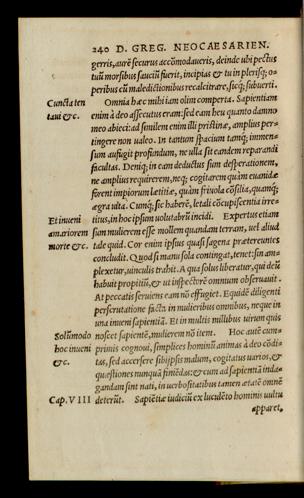 240 D. GREG. NEOCAESARIEN.
gerris, aurē securus accōmodaueris, deinde ubi pectus
tuū morsibus sauciū fuerit, incipias & tu in plerisq; o-
peribus cū maledictionibus recalcitrare, sicq; subuerti.
Cuncta ten Omnia hæc mihi iam olim comperta. Sapientiam
taui &c. enim à deo assecutus eram: sed eam heu quanto damno
meo abieci: ad similem enim illi pristinæ, amplius per-
tingere non ualeo. In tantum spacium tamq; immen-
sum aufugit profundum, ne ulla sit eandem reparandi
facultas. Deniq; in eam deductus sum desperationem,
ne amplius requirerem, neq; cogitarem quàm euanidæ
forent impiorum lætitiæ, quàm friuola cōsilia, quamq;
ægra uita. Cumq; sic haberē, letali cōcupiscentiæ irre-
Et inueni titus, in hoc ipsum uolutabrū incidi. Expertus etiam
amariorem sum mulierem esse mollem quandam terram, uel aliud
morte &c. tale quid. Cor enim ipsius quasi sagena prætereuntes
concludit. Quod si manu sola contingat, tenet: sin am-
plexetur, uinculis trahit. A qua solus liberatur, qui deū
habuit propitiū, & ut inspectorē omnium obseruauit.
At peccatis seruiens eam nō effugiet. Equidē diligenti
perscrutatione facta in mulieribus omnibus, neque in
una inueni sapientiā. Et in multis millibus uirum quis
Solūmodo noscet sapientē, mulierem nō item. Hoc autē cum
hoc inueni primis cognoui, simplices hominū animas à deo cōdi-
&c. tas, sed accersere sibijpsis malum, cogitatus uarios, &
quæstiones nunquā finiēdas: & cum ad sapientiā inda-
gandam sint nati, in uerbositatibus tamen ætatē omnē
Cap. VIII deterūt. Sapiētiæ iudiciū ex luculēto hominis uultu
apparet,